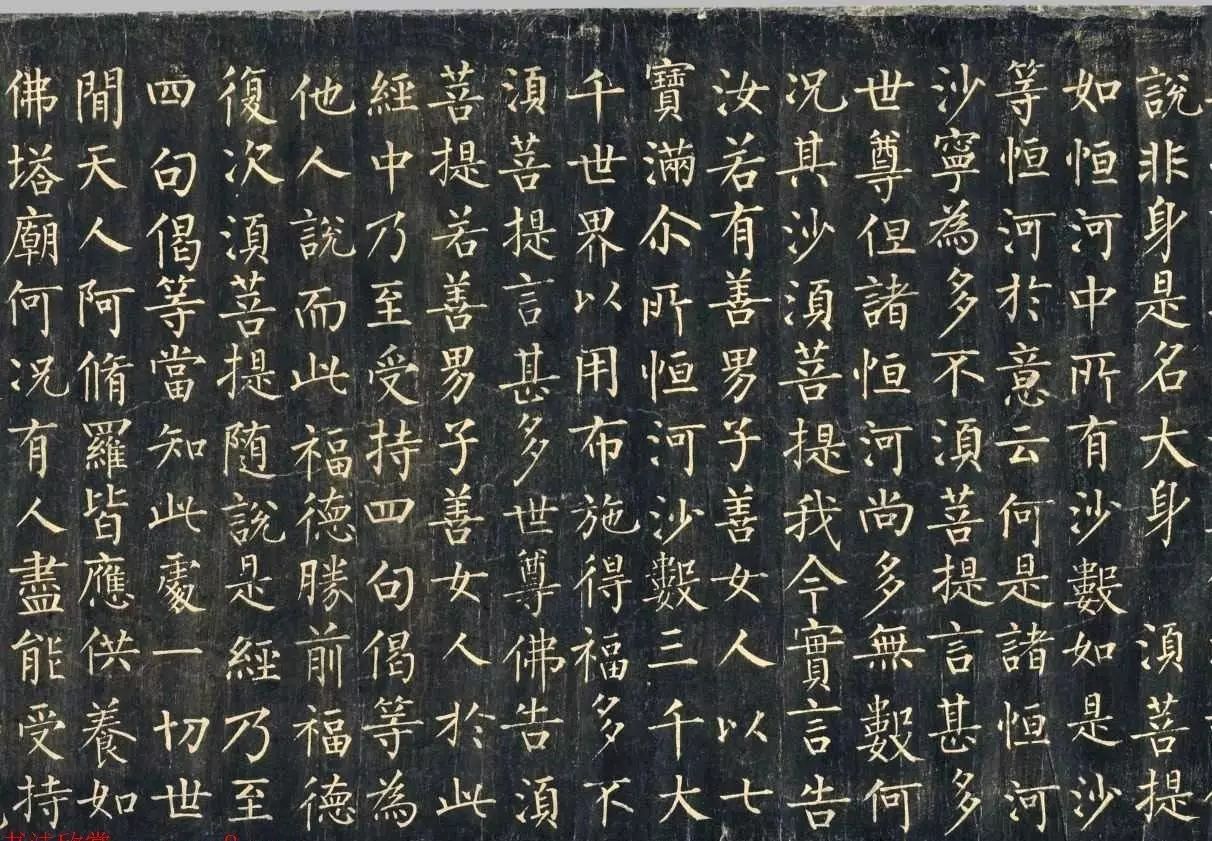 說非身是名大身 須菩提
如恒河中所有沙數如是沙
等恒河於意云何是諸恒河
沙寧為多不須菩提言甚多
世尊但諸恒河尚多無數何
況其沙須菩提我今實言告
汝若有善男子善女人以七
寶滿尒所恒河沙數三千大
千世界以用布施得福多不
須菩提言甚多世尊佛告須
菩提若善男子善女人於此
經中乃至受持四句偈等為
他人說而此福德勝前福德
復次須菩提随說是經乃至
四句偈等當知此處一切世
間天人阿脩羅皆應供養如
佛塔廟何況有人盡能受持